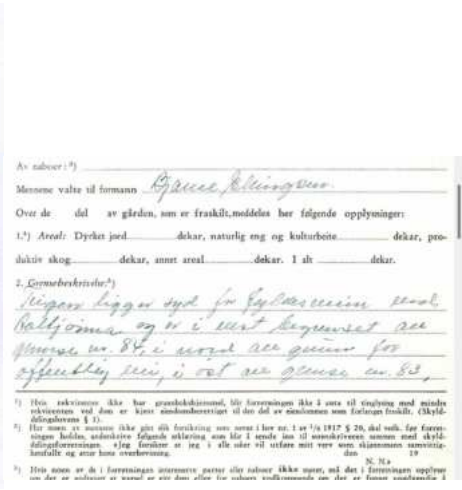 Av naboer: ²)
Mennene valte til formann Bjarne Ellingsen.
Over de del av gården, som er fraskilt, meddeles her følgende opplysninger:
1.⁴) Areal: Dyrket jord dekar, naturlig eng og kulturbeite dekar, pro-
duktiv skog dekar, annet areal dekar. I alt dekar.
2. Grensebeskrivelse:⁵)
ligger syd for
og er i vest begrenset av
grense nr. 84, i nord av grense for
offentlig vei, i øst av grense nr. 83,
Hvis rekvirenten ikke har grunnbokshjemmel, blir forretningen ikke å anta til tinglysing med mindre
rekvirenten ved dom er kjent eiendomsberettiget til den del av eiendommen som forlanges fraskilt. (Skyld-
delingslovens § 1).
Har noen av mennene ikke gitt slik forsikring som nevnt i lov nr. 1 av 1/6 1917 § 20, skal vedk. før forret-
ningen holdes, underskrive følgende erklæring som blir å sende inn til sorenskriveren sammen med skyld-
delingsforretningen. «Jeg forsikrer at jeg i alle saker vil utføre mitt verv som skjønnsmann samvittig-
hetsfullt og etter beste overbevisning. den 19
N. N.»
Hvis noen av de i forretningen interesserte parter eller naboer ikke møter, må det i forretningen opplyses